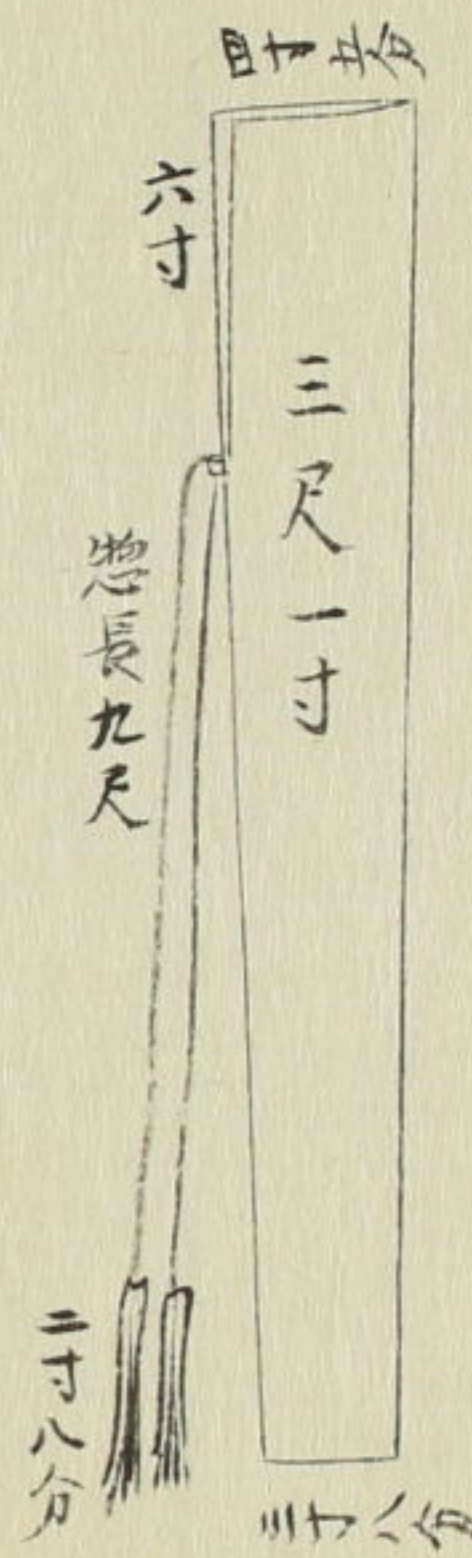 四寸五分
三尺一寸
六寸
惣長九尺
二寸八分
三寸八分